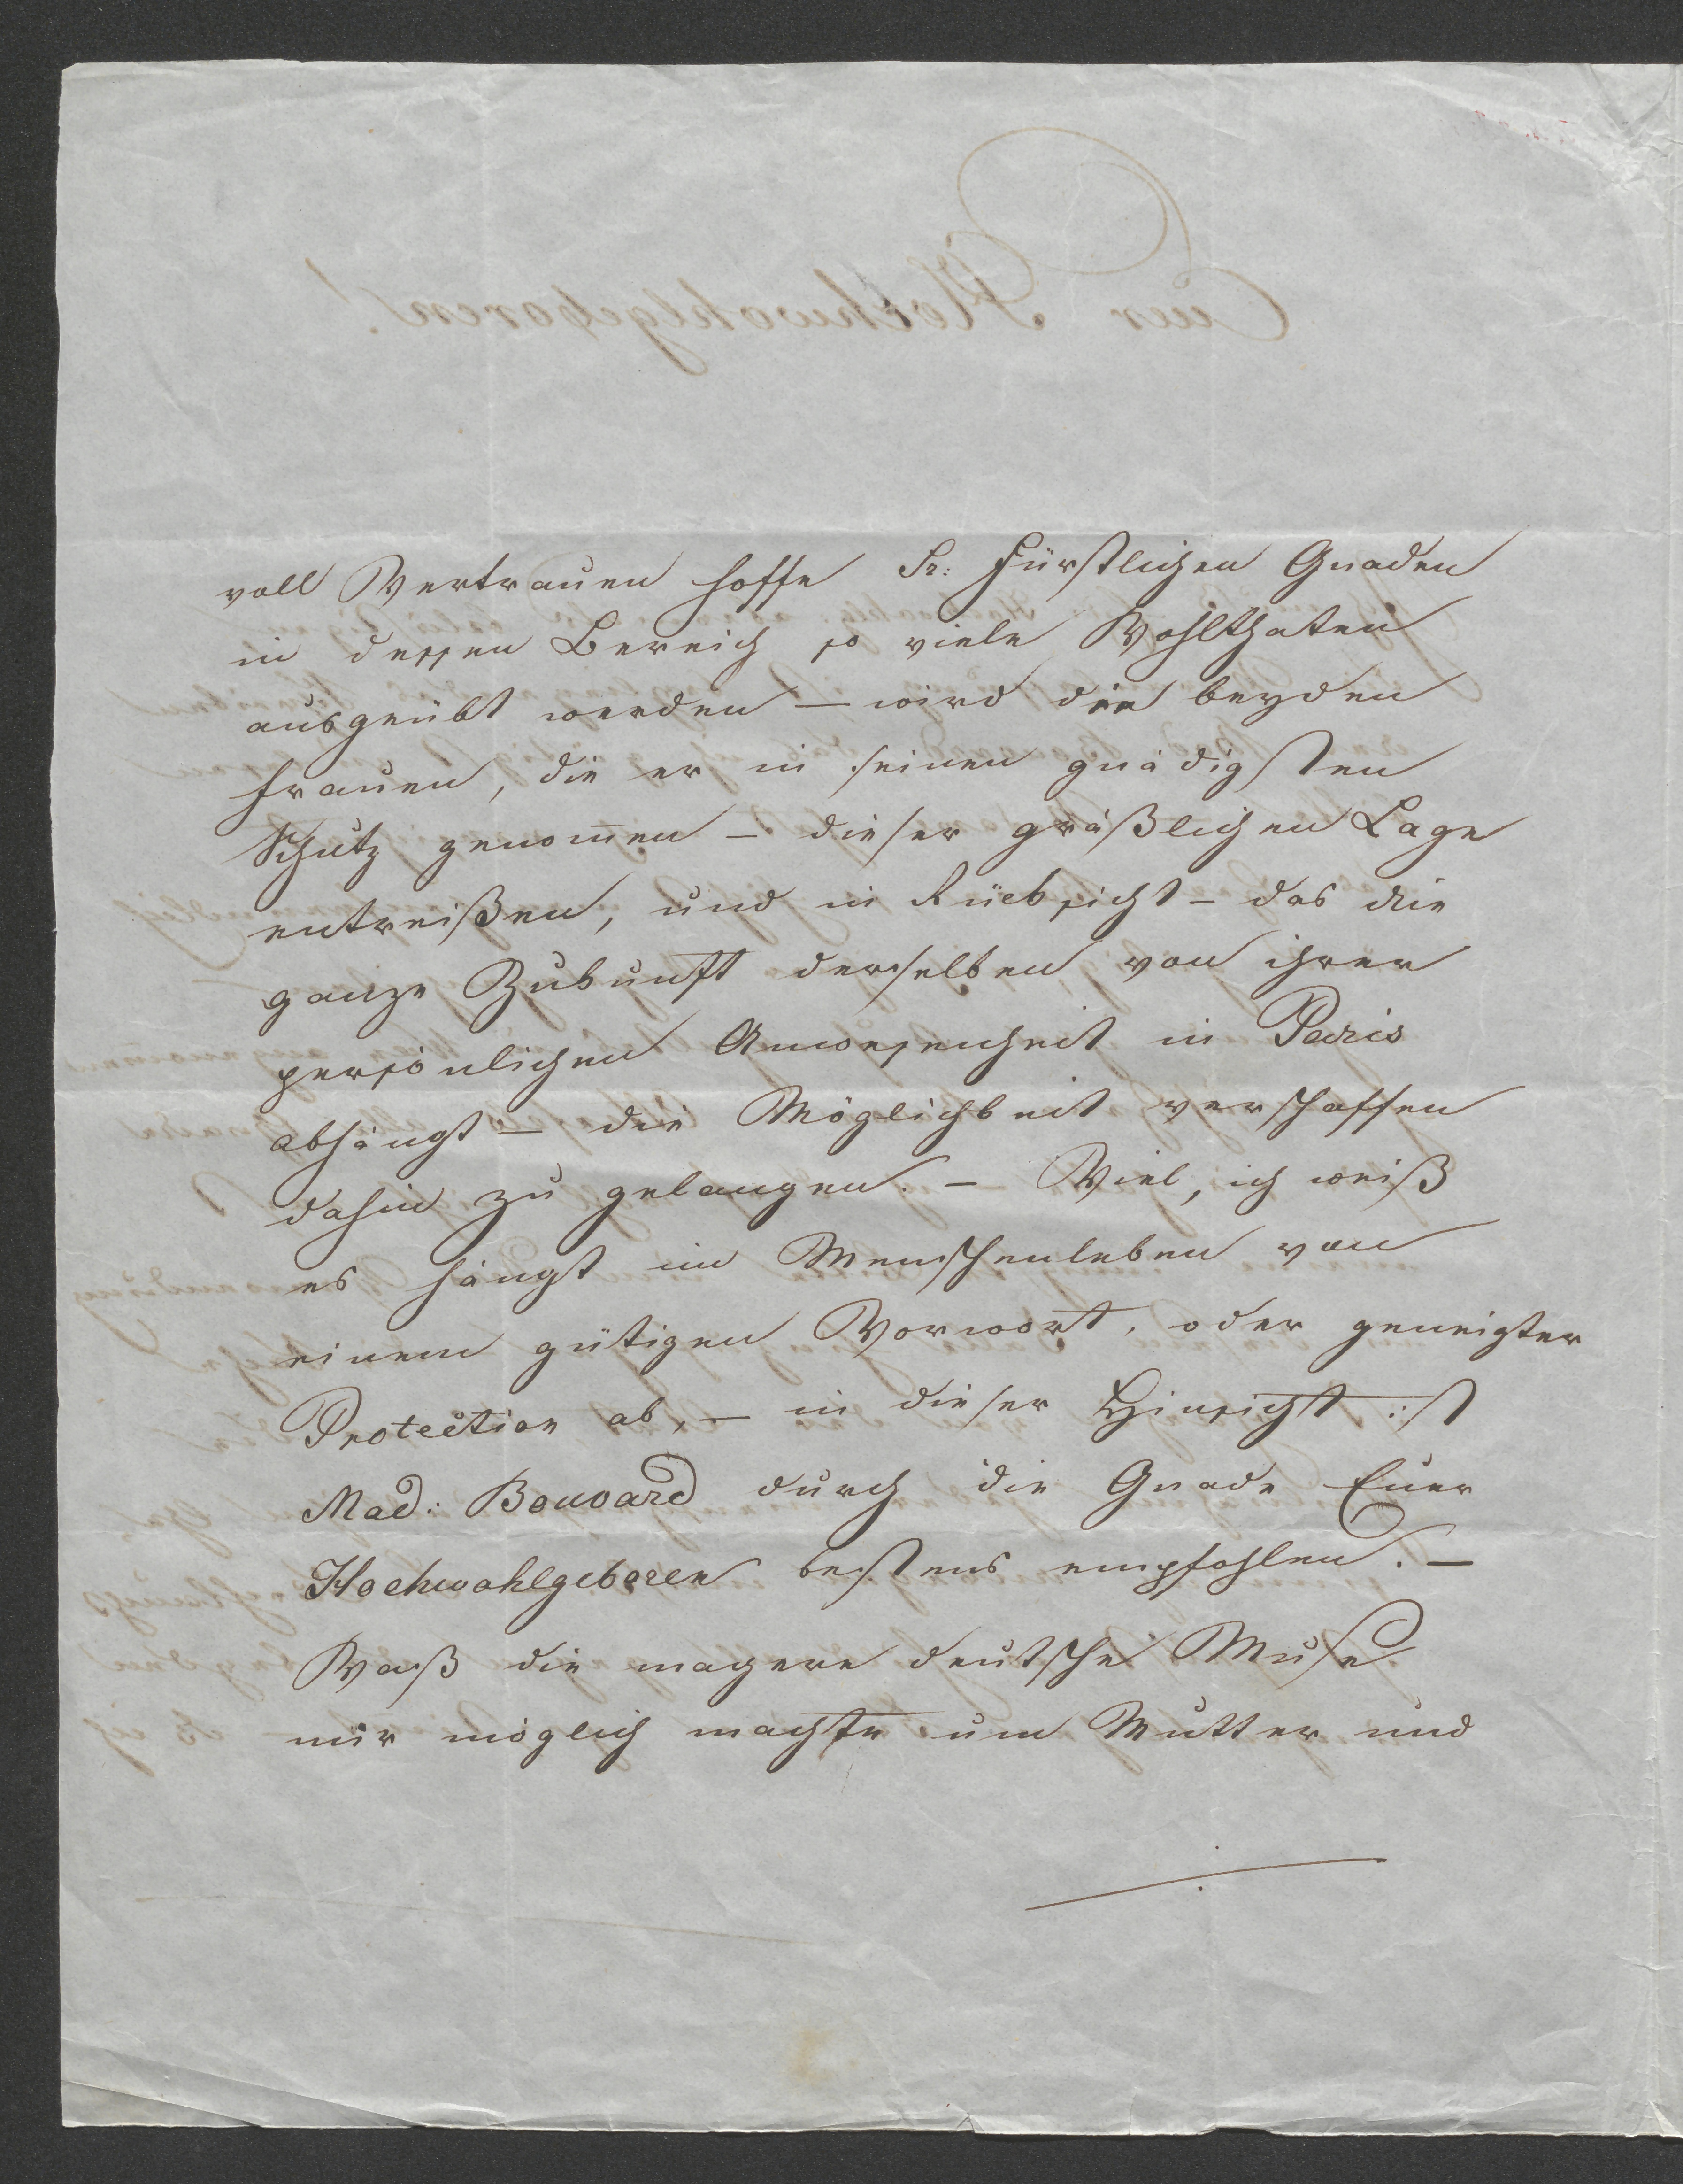 voll Vertrauen hoffe Sr: Fürstlichen Gnaden
in dessen Bereich so viele Wohlthaten
ausgeübt werden — wird die beyden
Frauen, die er in seinen gnädigsten
Schutz genom̅en — dieser gräßlichen Lage
entreißen, und in Rücksicht — das die
ganze Zukunft derselben von ihrer
persönlichen Anwesenheit in Paris
abhängt — die Möglichkeit verschaffen
dahin zu gelangen. — Viel, ich weiß
es hängt im Menschenleben von
einem gütigen Vorwort, oder geneigter
Protection ab, — in dieser Hinsicht ist
Mad: Bouvard durch die Gnade Euer
Hochwohlgeboren bestens empfohlen. —
Waß die magere deutsche Muse
mir möglich machte um Mutter und